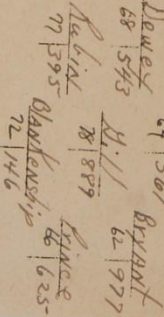 Dewey
68 | 543
Bryant
62 | 977
Hill
78 | 889
Rubin
77 | 595
Prince
66 | 625
Blankenship
72 | 146